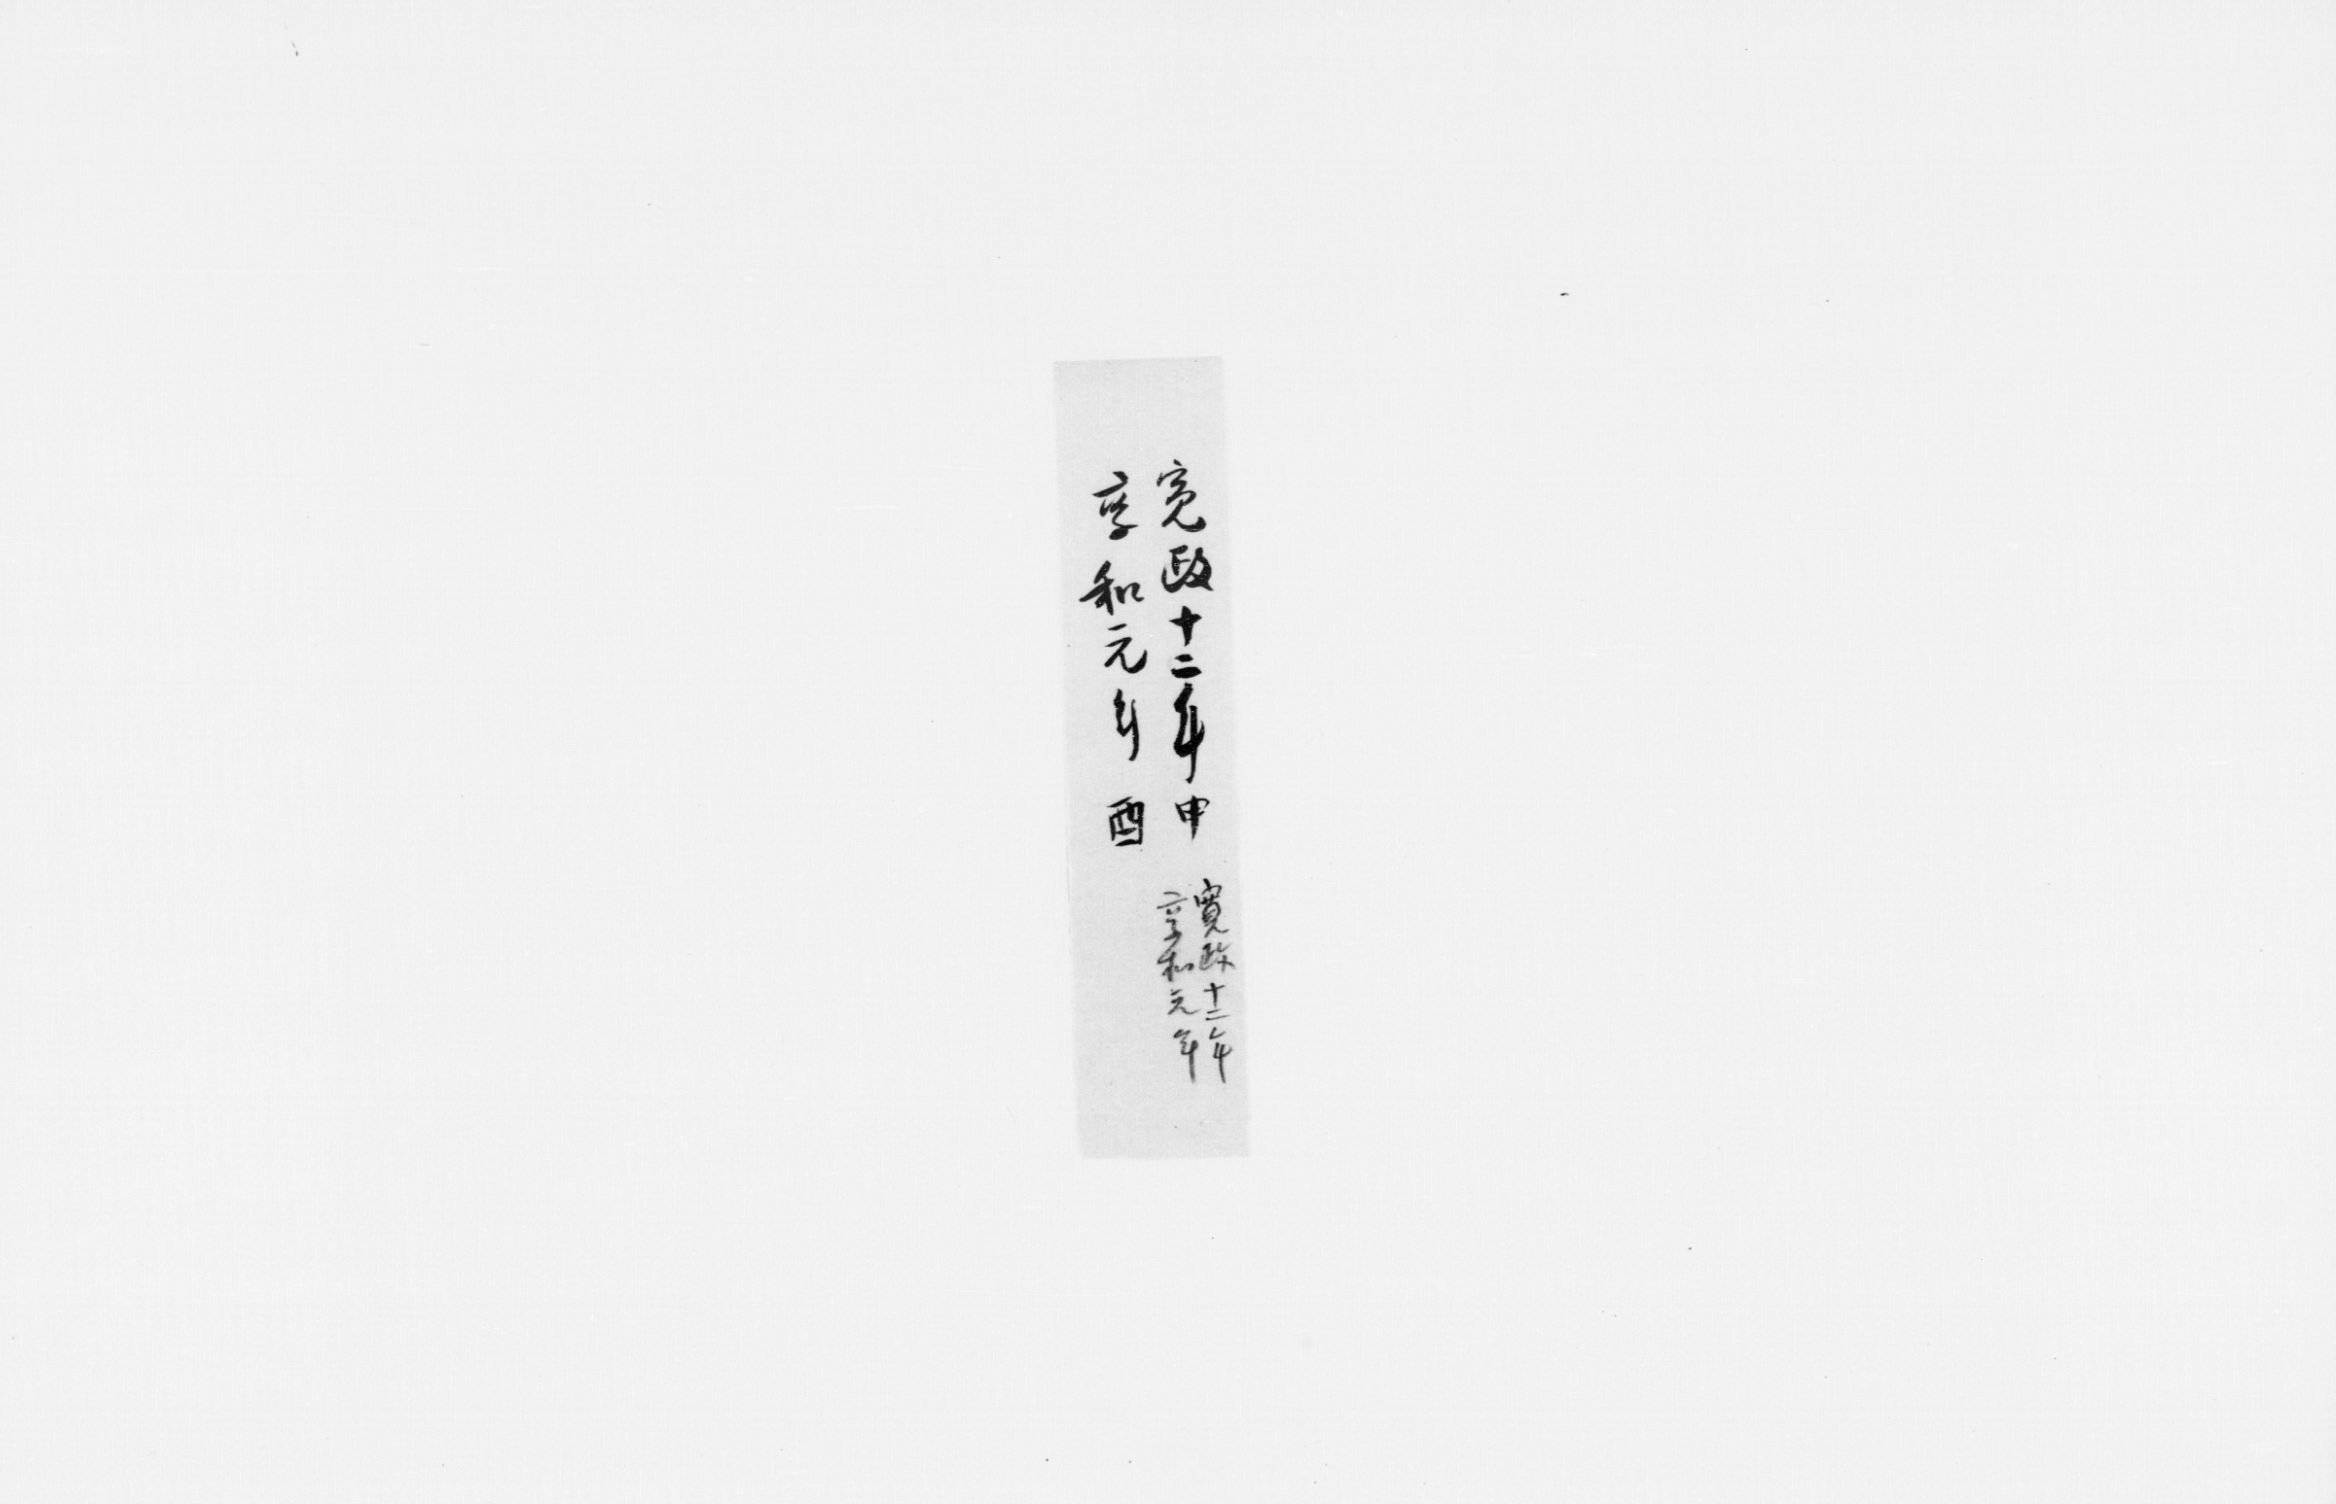 寛政十二年申
享和元年酉
寛政十二年
享和元年